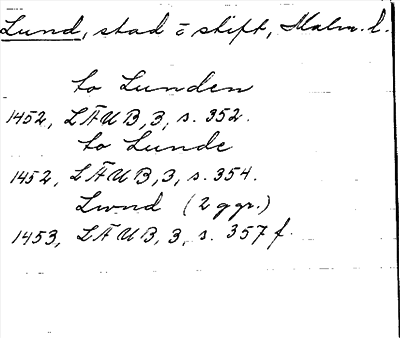 Lund, stad o stift, Malm. l.
to Lunden
1452, LÄUB, 3, s. 352.
to Lunde
1452, LÄUB, 3, s. 354.
Lwnd (2 ggr.)
1453, LÄUB, 3, s. 357 f.